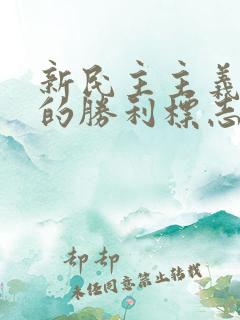 新民主主義
的勝利標志
却却
未任同意禁止转载